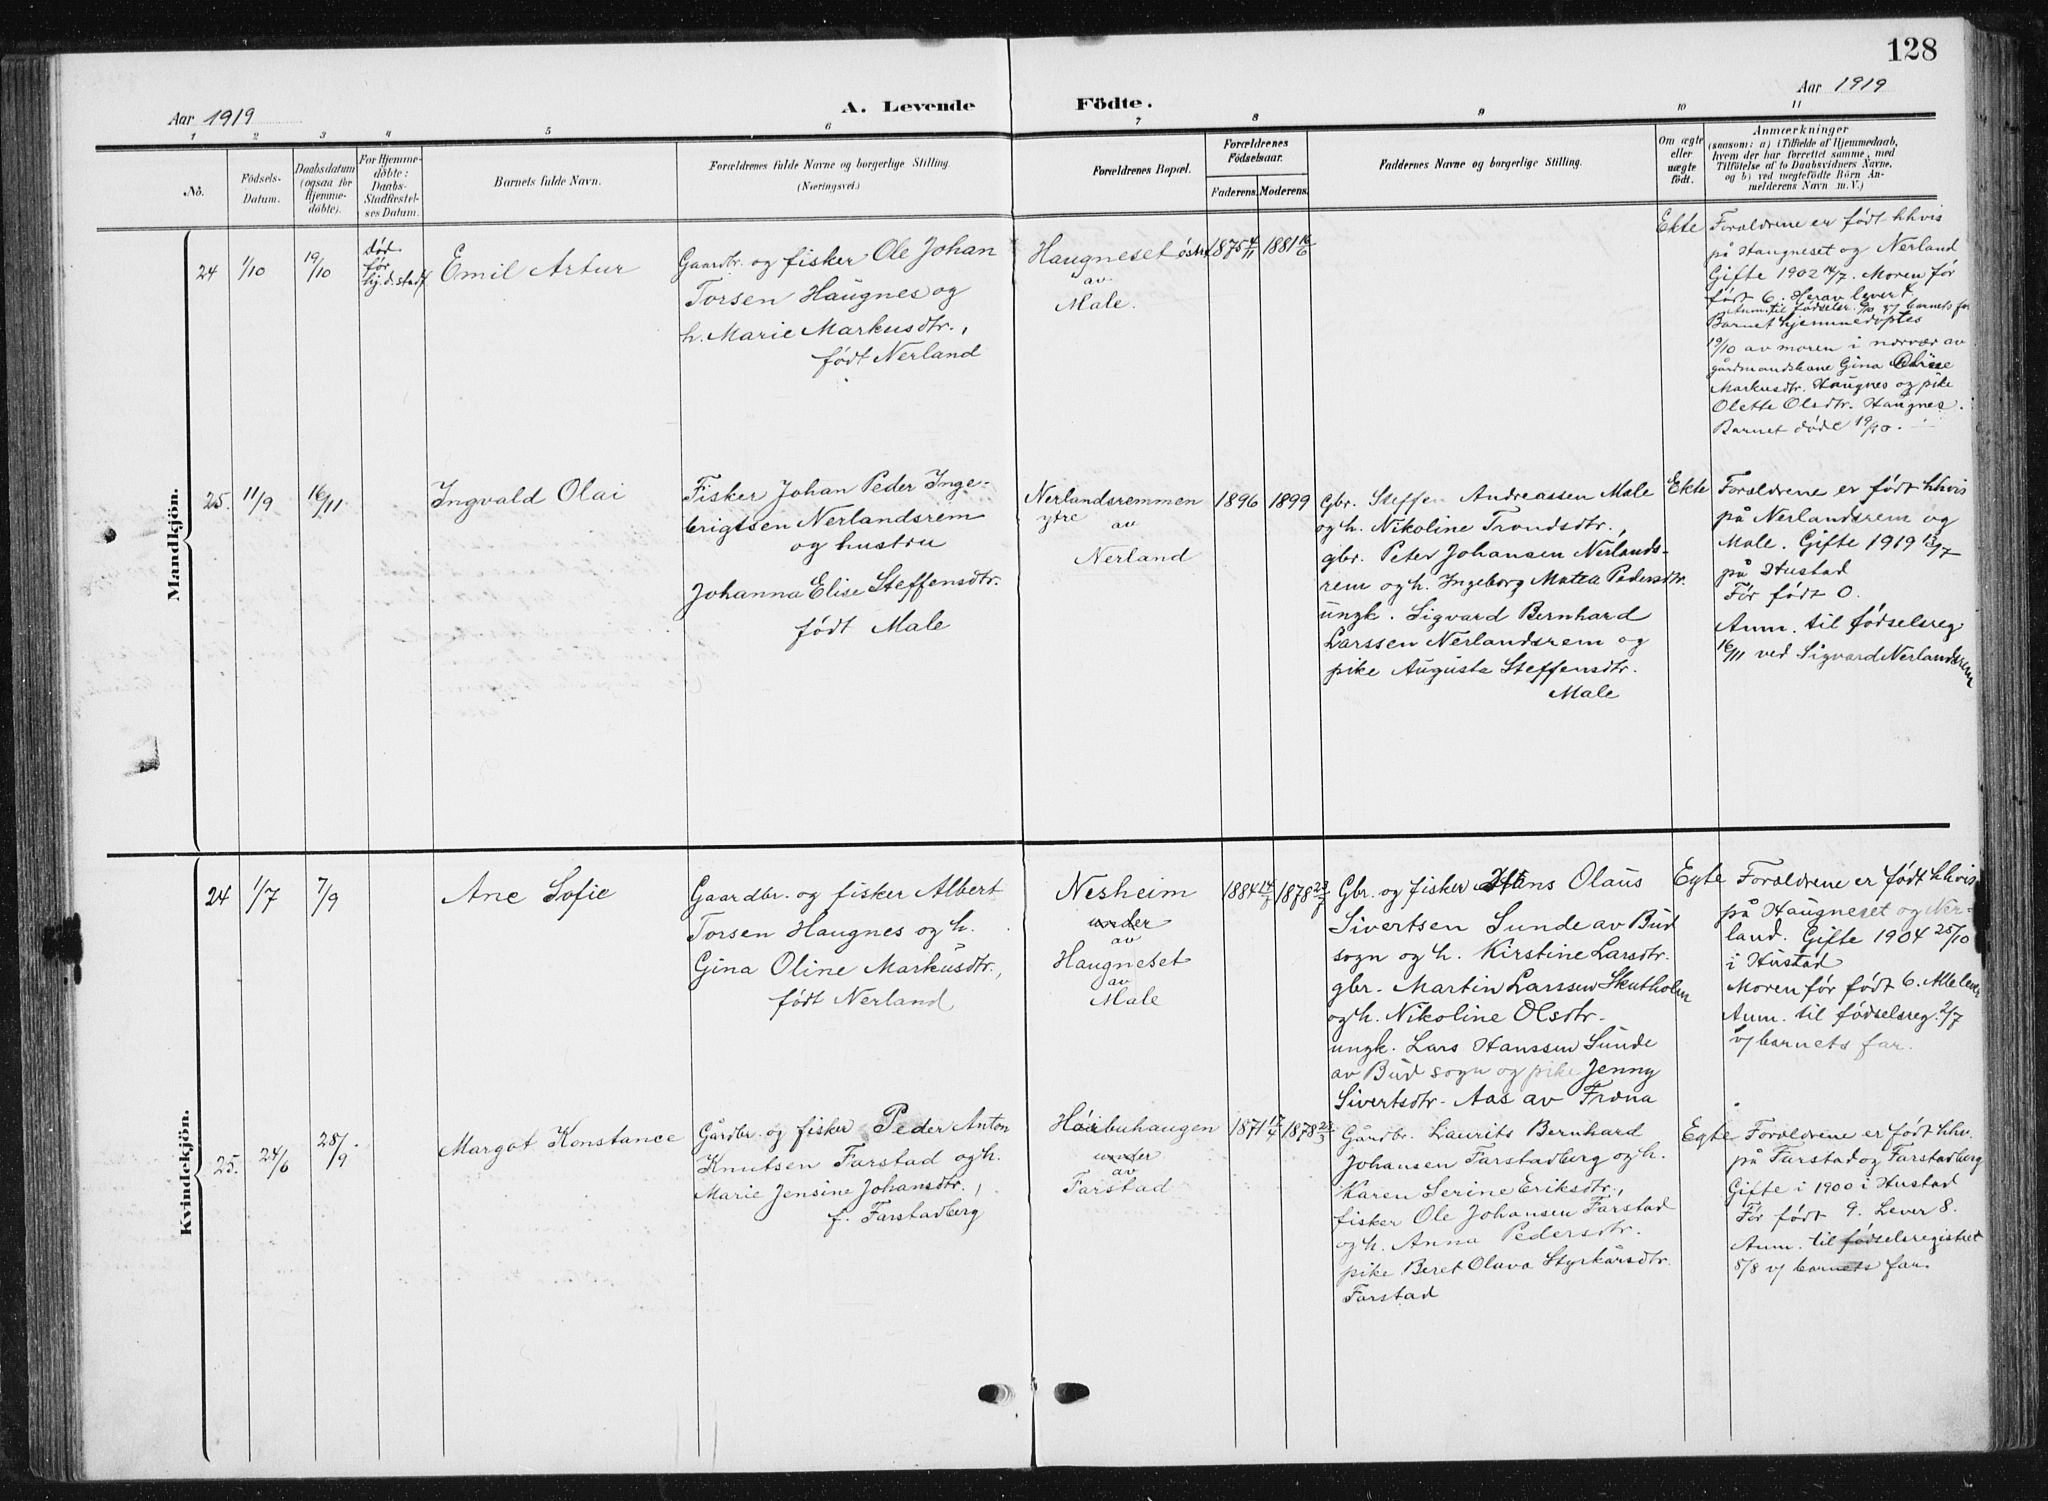 128
Aar 1919
A. Levende Födte.
Aar 1919
1 2 3 4 5 6 7 8 9 10 11
No.
Födsels-
Datum.
Daabsdatum
(ogsaa for
Hjemme-
döbte).
For Hjemme-
döbte:
Daabs-
Stadfæstel-
ses Datum.
Barnets fulde Navn.
Forældrenes fulde Navne og borgerlige Stilling.
(Næringsvei.)
Forældrenes Bopæl.
Forældrenes
Födselsaar.
Faderens. Moderens.
Faddernes Navne og borgerlige Stilling.
Om ægte
eller
uægte
födt.
Anmærkninger
(saasom: a) i Tilfælde af Hjemmedaab,
hvem der har forrettet samme, med
Tilföielse af to Daabsvidners Navne,
og b) ved uegtefödte Börn An-
melderens Navn m. V.)
Mandkjön.
24
1/10
19/10
död
för
hj.d. stadf
Emil Artur
Gaardbr. og fisker Ole Johan
Torsen Haugnes og
h. Marie Markusdtr.,
født Nerland
Haugneset östre
av
Male.
1875 4/11
1881 16/6
Ekte
Forældrene er født hhvis
på Haugneset og Nerland
Gifte 1902 14/7. Moren før
født 6. Herav lever 4
Anm. til fødselsr. 6/10 v/ barnets far
Barnet hjemmedøptes
19/10 av moren i nærvær av
gårdmandskone Gina Oline
Markusdtr. Haugnes og pike
Olette Olsdtr. Haugnes.
Barnet døde 19/10.
25.
11/9
16/11
Ingvald Olai
Fisker Johan Peder Inge-
brigtsen Nerlandsrem
og hustru
Johanna Elise Steffensdtr.
født Male
Nerlandsremmen
ytre av
Nerland
1896
1899
Gbr. Steffen Andreassen Male
og h. Nikoline Trondsdtr.,
gbr. Peter Johansen Nerlands-
rem og h. Ingeborg Matea Pedersdtr.
ungk. Sigvard Bernhard
Larssen Nerlandsrem og
pike Augusta Steffensdtr.
Male
Ekte
Forældrene er født hhvis
på Nerlandsrem og
Male. Gifte 1919 13/7
på Hustad
Før født 0.
Anm. til fødselsreg
16/11 ved Sigvard Nerlandsrem
Kvindekjön.
24
1/7
7/9
Ane Sofie
Gaardbr. og fisker Albert
Torsen Haugnes og h.
Gina Oline Markusdtr.,
født Nerland
Nesheim
under
av
Haugneset
av
Male
1884
1878
Gbr. og fisker Hans Olaus
Sivertsen Sunde av Bud
sogn og h. Kirstine Larsdtr.
gbr. Martin Larssen Skutholm
og h. Nikoline Olsdtr.
ungk. Lars Hanssen Sunde
av Bud sogn og pike Jenny
Sivertsdtr. Aas av Fræna
Egte
Forældrene er født hhvis
på Haugneset og Ner-
land. Gifte 1904 25/10
i Hustad
Moren før født 6. Alle lever
Anm. til fødselsreg. 2/7
v/ barnets far.
25.
24/6
28/9
Margot Konstance
Gårdbr. og fisker Peder Anton
Knutsen Farstad og h.
Marie Jensine Johansdtr.,
f. Farstadberg
Høibuhaugen
under
av
Farstad
1871 17/4
1878
Gårdbr. Laurits Bernhard
Johansen Farstadberg og h.
Karen Serine Eriksdtr.,
fisker Ole Johansen Farstad
og h. Anna Pedersdtr.
pike Beret Olava Styrkårsdtr.
Farstad
Egte
Forældrene er født hhv.
på Farstad og Farstadberg
Gifte i 1900 i Hustad
Før født 9. Lever 8.
Anm. til fødselsregistret
8/8 v/ barnets far.